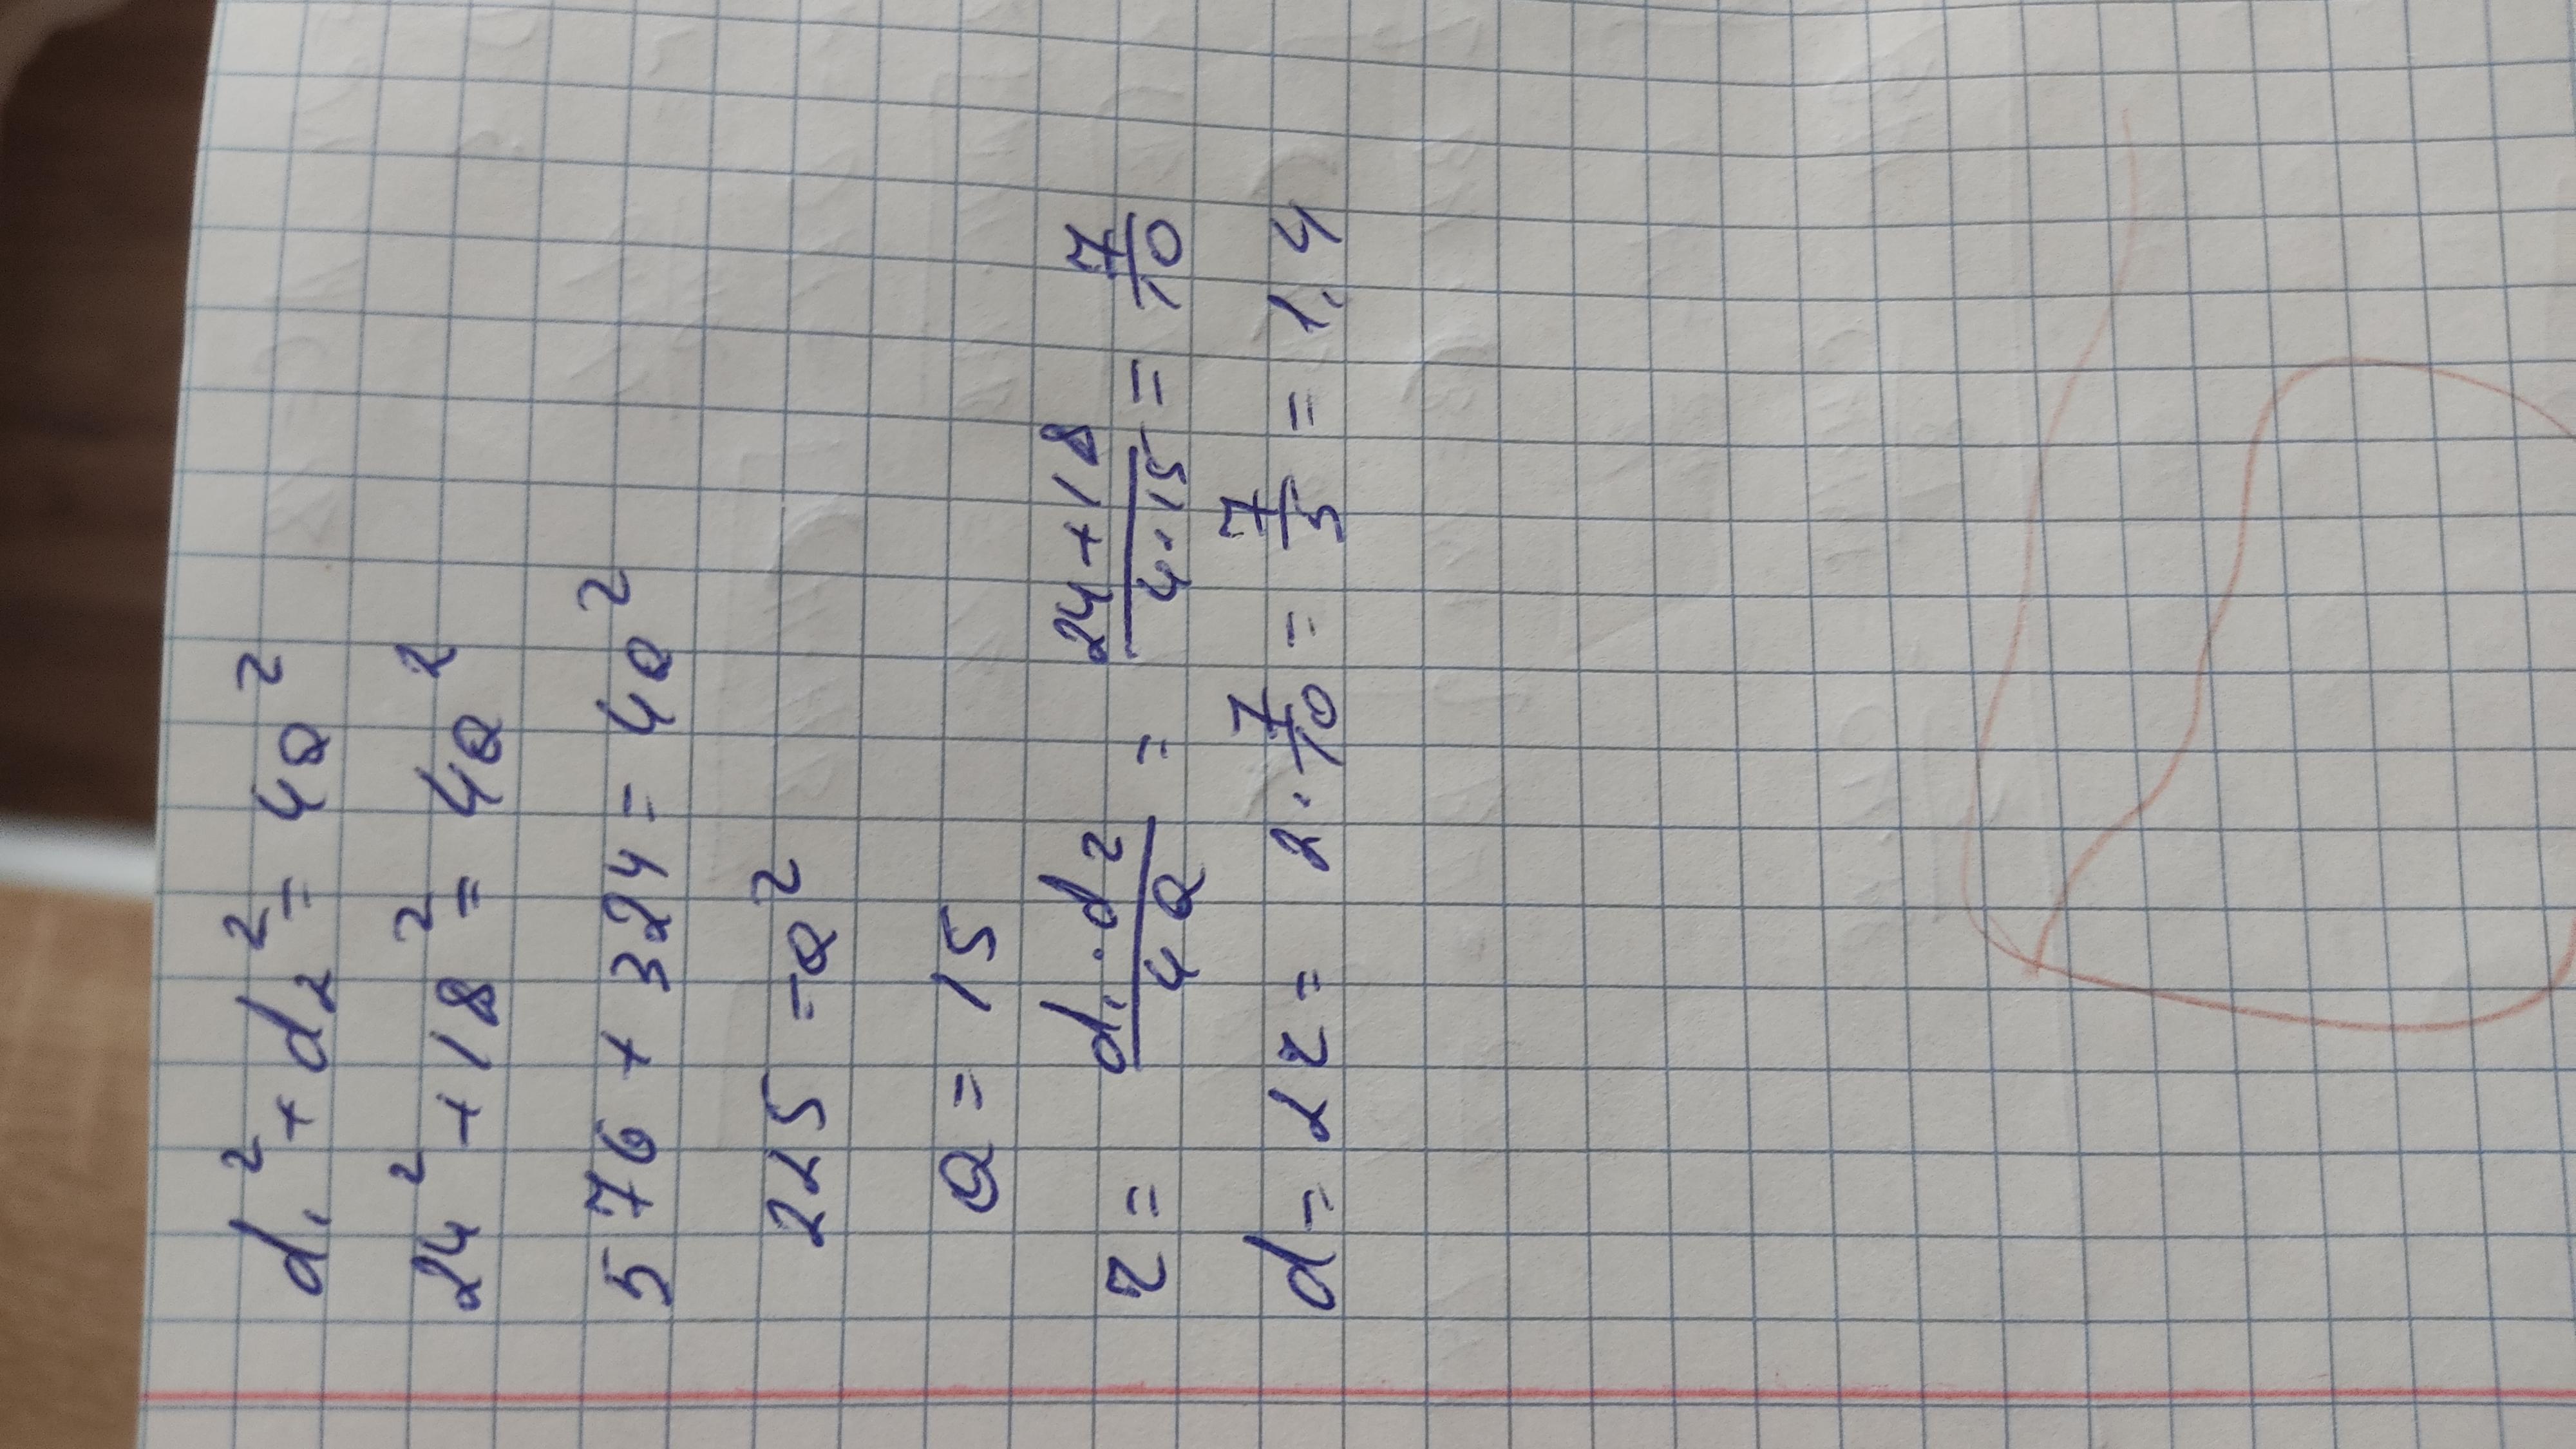 d₁² + d₂² = 4a²
24² + 18² = 4a²
576 + 324 = 4a²
225 = a²
a = 15
r = (d₁ · d₂)/(4a) = (24 + 18)/(4 · 15) = 7/10
d = 2r = 2 · 7/10 = 7/5 = 1,4